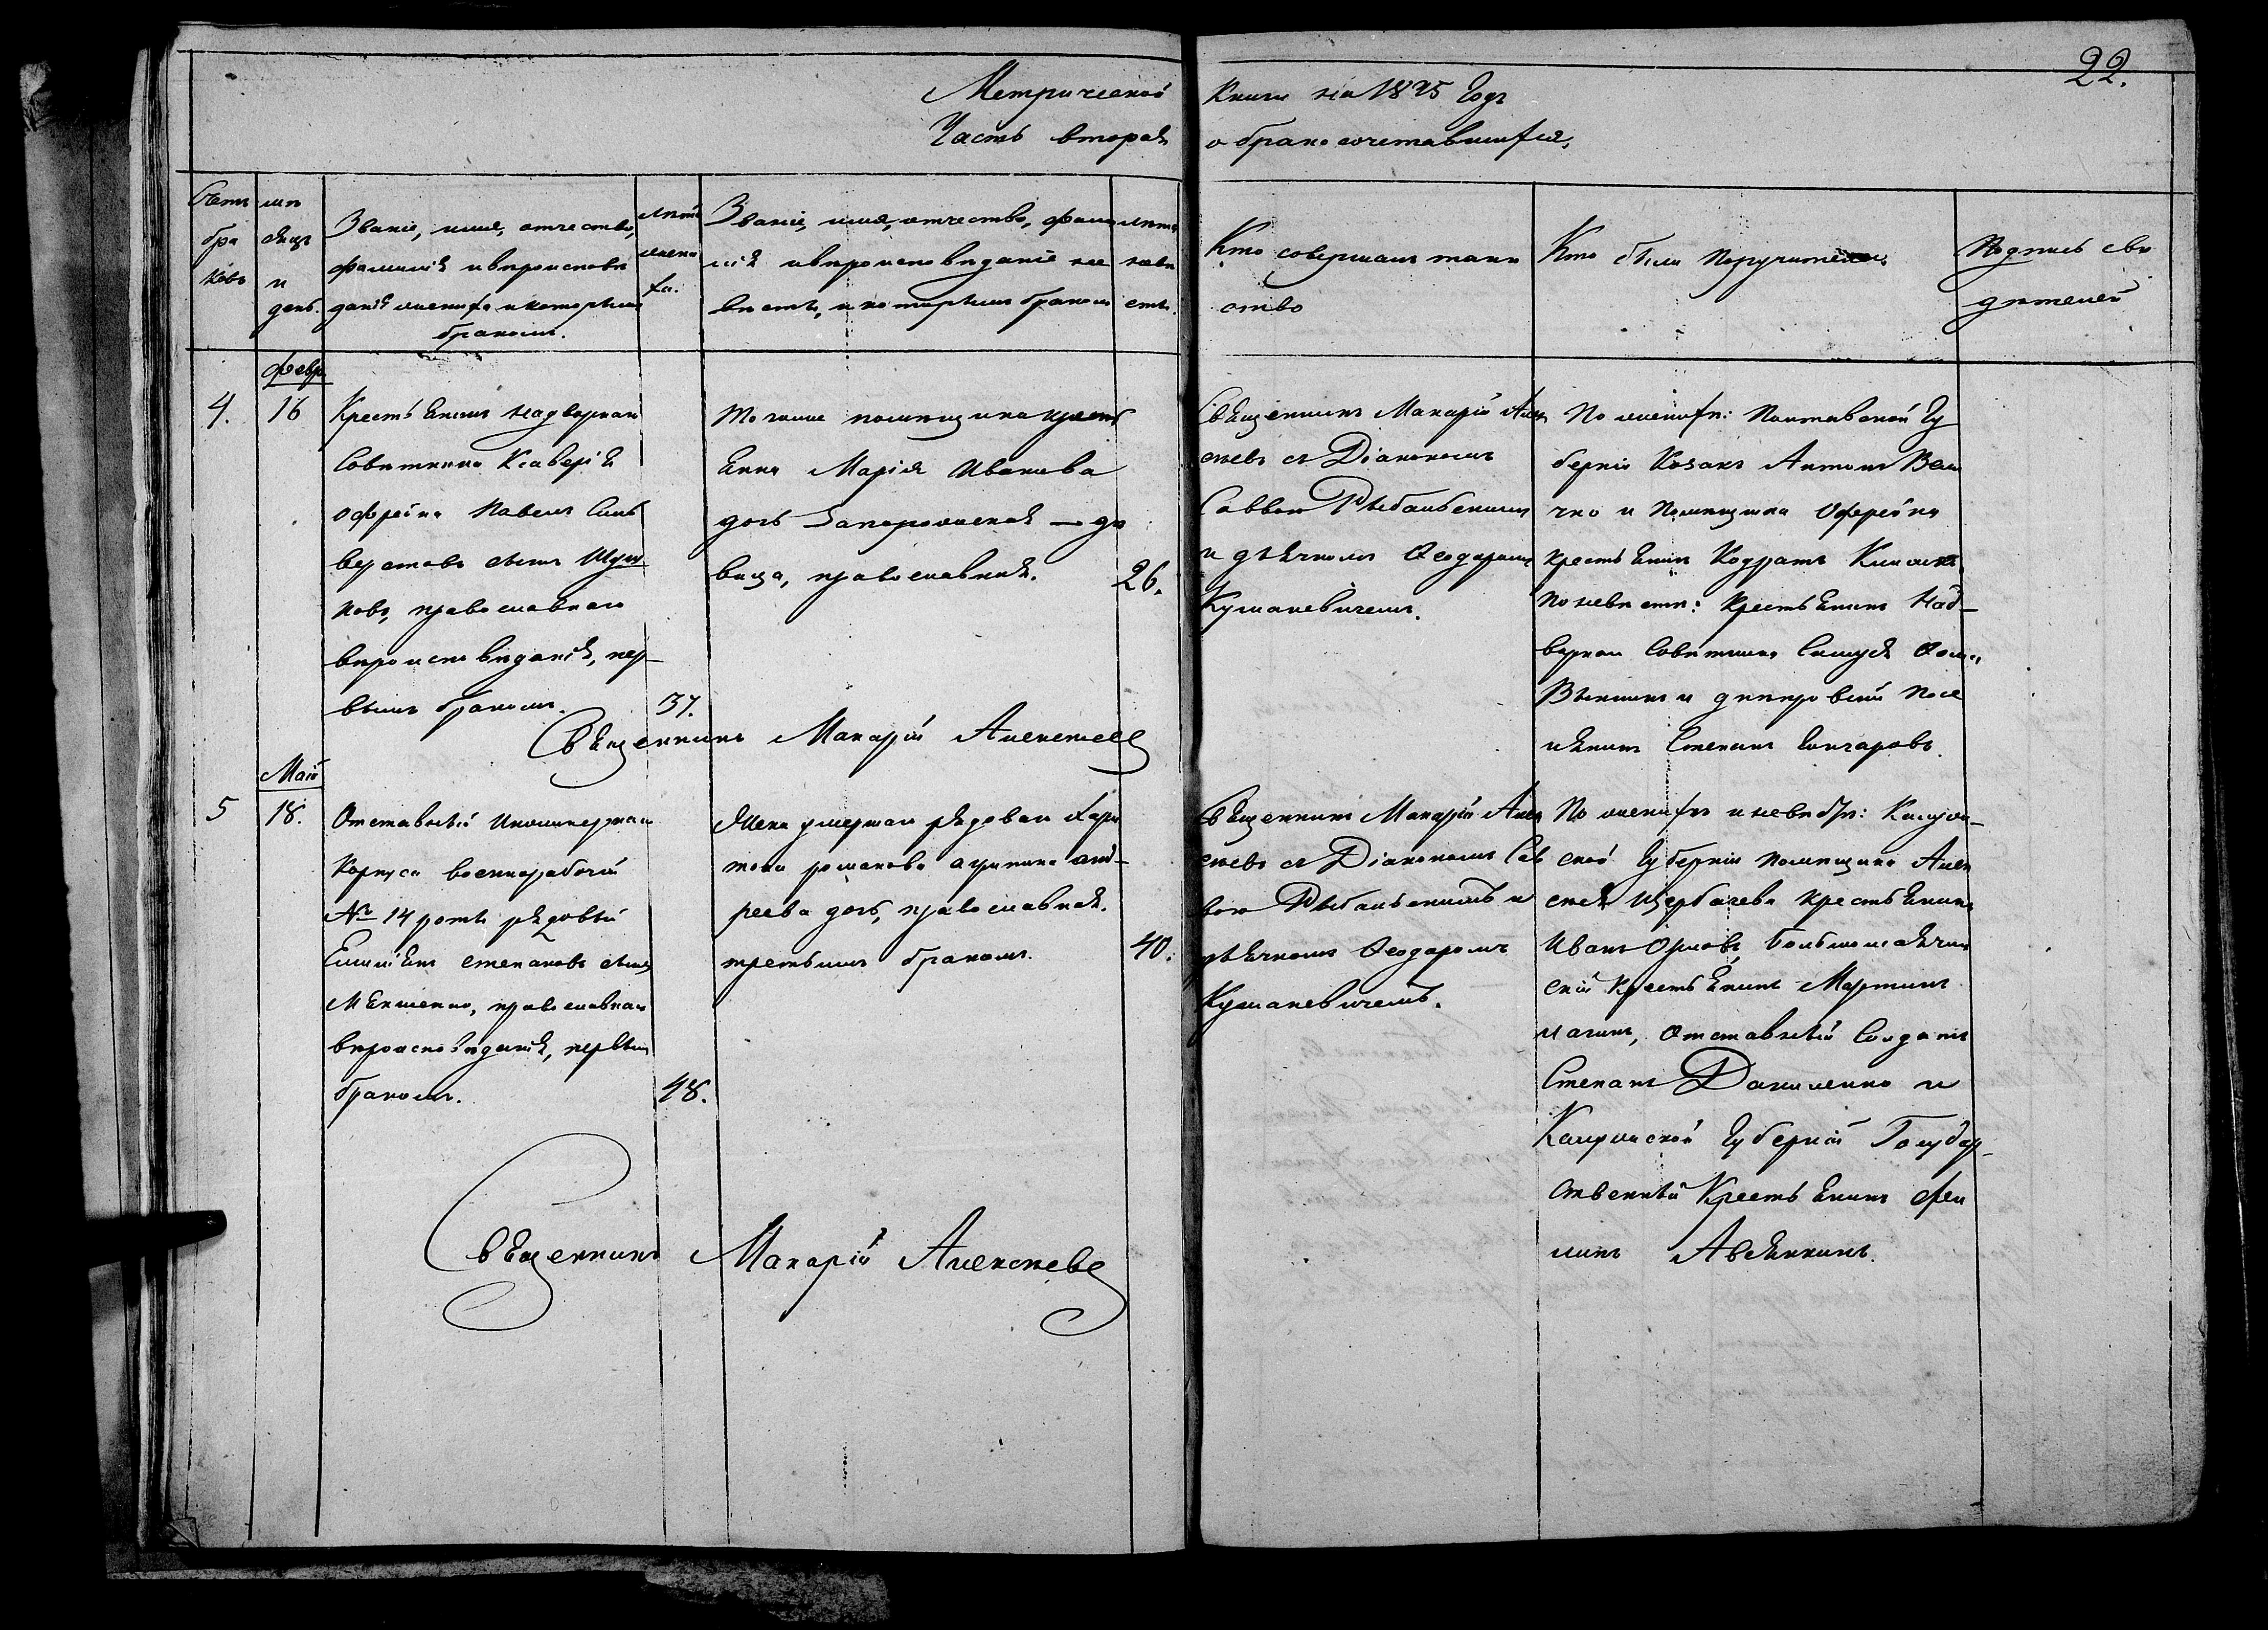 22.
Метрической книги на 18 5 годъ
Часть вторая о бракосочетавшихся.
Счетъ
бра
ковъ
мѣ
сяцъ
и
день.
Званіе, имя, отчество,
фамилія и вѣроисповѣ
данія жениха и которымъ
бракомъ.
лѣта
жени
ха.
Званіе, имя, отчество, фами
лія и вѣроисповѣданіе не
вѣсты, и которымъ бракомъ
лѣта
невѣ
сты.
Кто совершалъ таин
ство
Кто были поручители
Подпись сви
дѣтелей
февр.
4.
16
Крестьянинъ надворнаго
Совѣтника Ксаверія
Офрейна Павелъ Силь
верстовъ сынъ
ковъ, православнаго
вѣроисповѣданія, пер-
вымъ бракомъ.
37.
Того же помѣщика крестъ
янка Марія Иванова
дочь Запорожская — дѣ
вица, православная.
26.
Священникъ Макарій Алек
сѣевъ съ Діакономъ
Саввою Рыбальскимъ
и дьячкомъ Ѳеодоромъ
Кушакевичемъ.
По женихѣ: Полтавской Гу
берніи Козакъ Антонъ Вели
чко и Помѣщика Офрейна
крестьянинъ Кодратъ
По невѣстѣ: Крестьянинъ Над-
ворнаго Совѣтника Ѳома
и днѣпровскій посе
лянинъ Степанъ Гончаровъ.
Священникъ Макарій Алексѣевъ
Май
5
18.
Отставной Инженернаго
Корпуса военнорабочей
№ 14 роты рядовый
Емиліянъ Степановъ сынъ
православнаго
вѣроисповѣданія, первымъ
бракомъ.
48.
Жена умершаго рядоваго Хари
тона Романова Агрипина Анд-
реева дочь, православная.
третьимъ бракомъ.
40.
Священникъ Макарій Алек
сѣевъ съ Діакономъ Сав
вою Рыбальскимъ и
дьячкомъ Ѳеодоромъ
Кушакевичемъ.
По женихѣ и невѣстѣ: Калуж-
ской Губерніи помѣщика Алек
сѣя Щербачева крестьянинъ
Иванъ Орловъ,
скій крестьянинъ Мартинъ
Отставный Солдатъ
Степанъ Даниленко и
Калужской Губерніи Государ-
ственный Крестьянинъ Фи
липъ
Священникъ Макарій Алексѣевъ